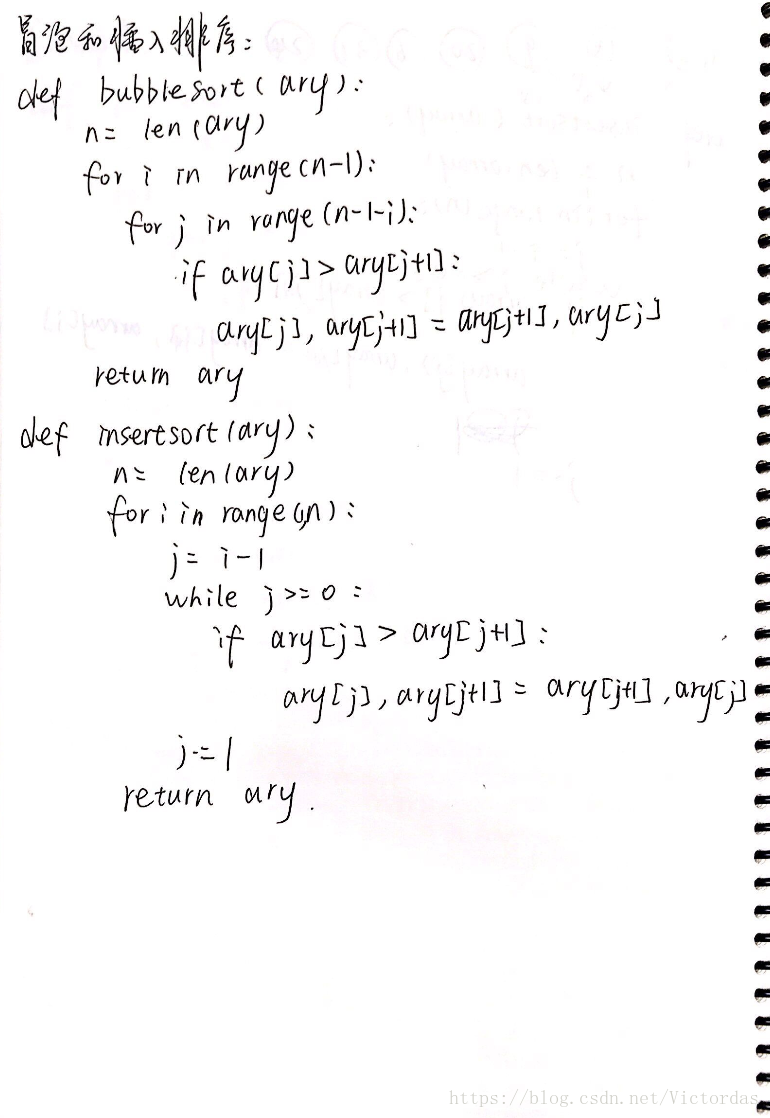 冒泡和插入排序:
def bubblesort(ary):
n= len(ary)
for i in range(n-1):
for j in range(n-1-i):
if ary[j]>ary[j+1]:
ary[j], ary[j+1] = ary[j+1], ary[j]
return ary
def insertsort(ary):
n= len(ary)
for i in range(1,n):
j= i-1
while j>=0:
if ary[j] > ary[j+1]:
ary[j], ary[j+1] = ary[j+1], ary[j]
j-=1
return ary.
https://blog.csdn.net/Victordas